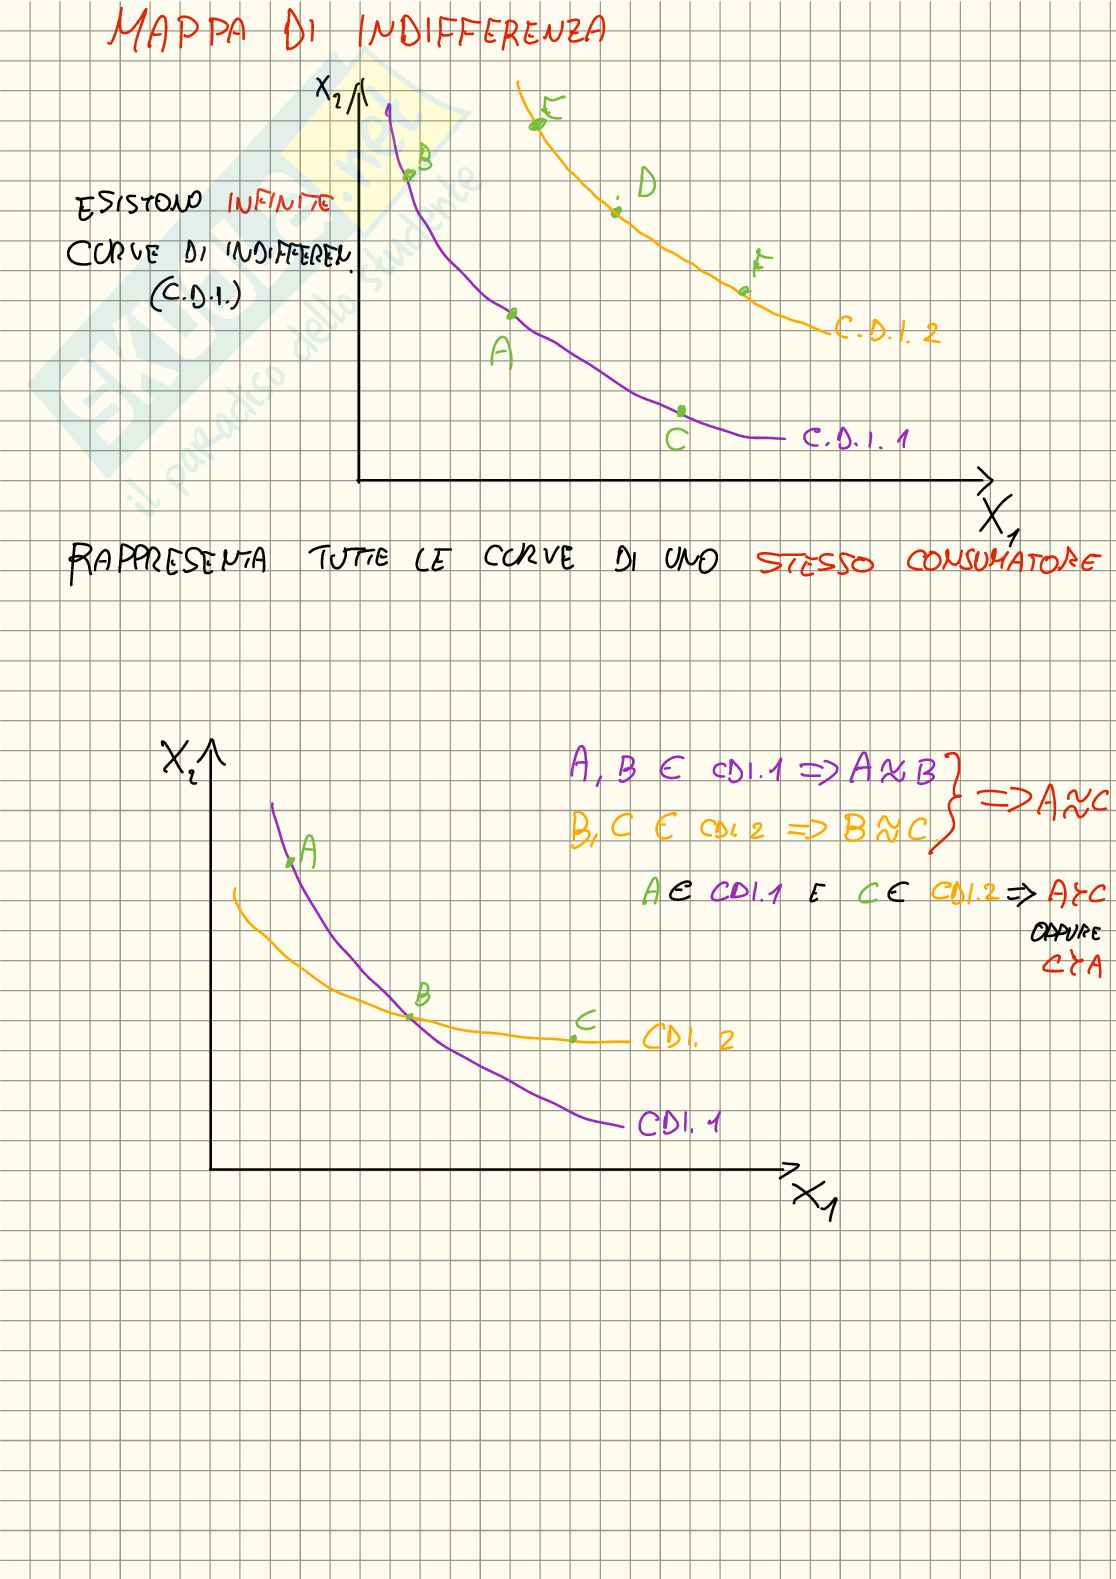 MAPPA DI INDIFFERENZA
X₂
E
B
D
ESISTONO INFINITE
CURVE DI INDIFFEREN.
(C.D.I.)
F
C.D.I. 2
A
C
C.D.I. 1
X₁
SKUOLA.net
il paradiso dello studente
RAPPRESENTA TUTTE LE CURVE DI UNO STESSO CONSUMATORE
X₂
A, B ∈ CDI.1 => A ≈ B
B, C ∈ CDI.2 => B ≈ C } => A ≈ C
A
A ∈ CDI.1 E C ∈ CDI.2 => A≻C
OPPURE
C≻A
B
C
CDI. 2
CDI. 1
X₁